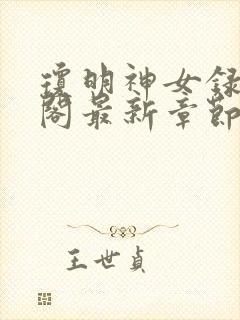 瓊明神女録
閣最新章節
王世貞